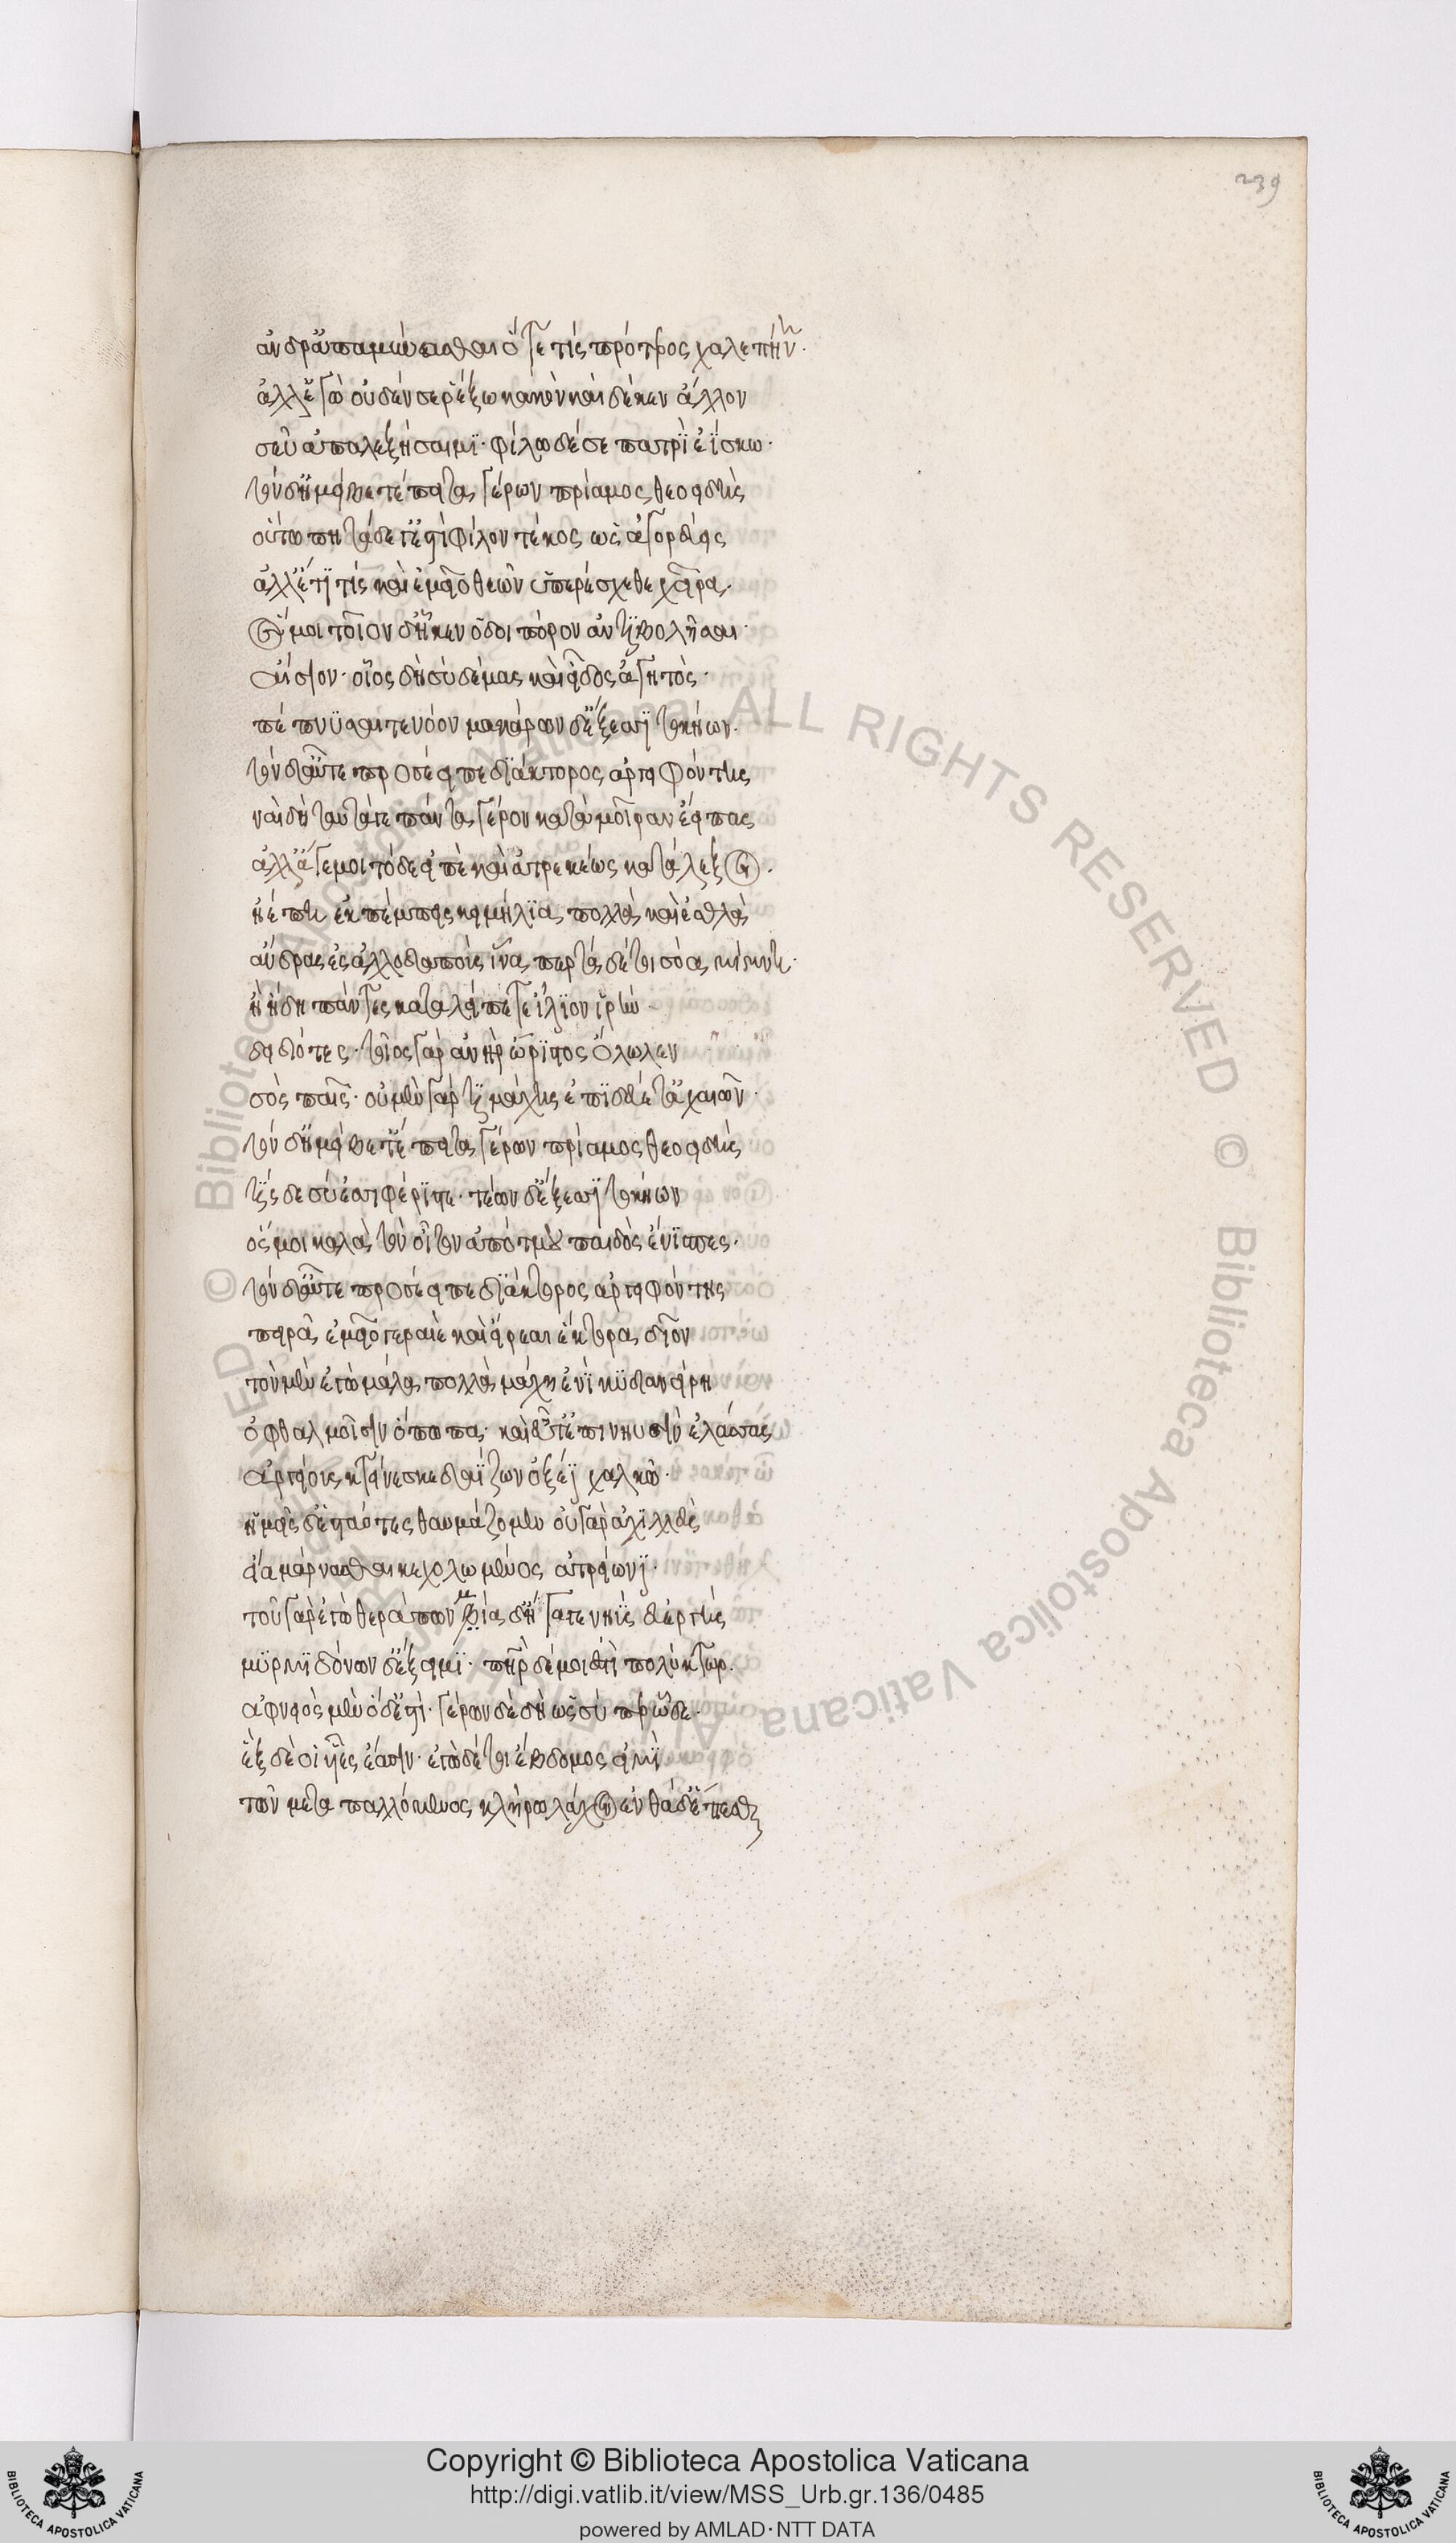 ἄνδρ' ἀπαμύνεσθαι ὅτε τίς πρότερος χαλεπήνῃ.
ἀλλ' ἐγὼ οὐδέν σε ῥέξω κακὸν καὶ δέ κεν ἄλλον
σεῦ ἀπαλεξήσαιμι· φίλω δέ σε πατρὶ ἐΐσκω·
τὸν δ' ἠμείβετ' ἔπειτα γέρων πρίαμος θεοειδὴς
οὕτω πη τάδε γ' ἐστὶ φίλον τέκος ὡς ἀγορεύεις
ἀλλ' ἔτι τίς καὶ ἐμεῖο θεῶν ὑπερέσχεθε χεῖρα.
ὅς μοι τοῖον δ' ἧκεν ὁδοιπόρον ἀντιβολῆσαι·
αἴσιον· οἷος δὴ σὺ δέμας καὶ εἶδος ἀγητὸς·
πέπνυσαι τε νόον μακάρων δ' ἔξεσσι τοκήων.
τὸν δ' αὖτε προσέειπε διάκτορος ἀργειφόντης
ναὶ δὴ ταῦτά γε πάντα γέρον κατὰ μοῖραν ἔειπας
ἀλλ' ἄγε μοι τόδε εἰπὲ καὶ ἀτρεκέως κατάλεξον.
ἠέ πῃ ἐκπέμπεις κειμήλια πολλὰ καὶ ἐσθλὰ
ἄνδρας ἐς ἀλλοδαποὺς ἵνα περ τάδέ τοι σόα μίμνῃ.
ἢ ἤδη πάντες καταλείπετε ἴλιον ἱρὴν
δειδιότες· τοῖος γὰρ ἀνὴρ ὥριστος ὄλωλεν
σὸς παῖς· οὐ μὲν γάρ τι μάχης ἐπιδεύετ' ἀχαιῶν·
τὸν δ' ἠμείβετ' ἔπειτα γέρων πρίαμος θεοειδὴς
τίς δε σύ ἐσσι φέριστε· τέων δ' ἔξεσσι τοκήων
ὅς μοι καλὰ τὸν οἶτον ἀπότμου παιδὸς ἔνισπες.
τὸν δ' αὖτε προσέειπε διάκτορος ἀργειφόντης
πειρᾶ ἐμεῖο γεραιὲ καὶ εἴρεαι ἕκτορα δῖον
τὸν μὲν ἐγὼ μάλα πολλὰ μάχη ἐνὶ κυδιανείρη
ὀφθαλμοῖσιν ὄπωπα· καὶ εὖτ' ἐπι νηυσὶν ἐλάσσας
ἀργείους κτείνεσκε δαΐζων ὀξέϊ χαλκῶ.
ἡμεῖς δ' ἑσταότες θαυμάζομεν οὐ γὰρ ἀχιλλεὺς
εἴα μάρνασθαι κεχολωμένος ἀτρείωνι.
τοῦ γὰρ ἐγὼ θεράπων μία δ' ἤγαγε νηῦς εὐεργὴς
μυρμιδόνων δ' ἔξειμι· πατὴρ δέ μοι ἐστὶ πολύκτωρ.
ἀφνειὸς μὲν ὅδ' ἐστί· γέρων δὲ δὴ ὡς σύ περ ὧδε.
ἓξ δέ οἱ υἷες ἔασιν· ἐγὼ δέ τοι ἕβδομος εἰμὶ
τῶν μετα παλλόμενος κλήρω λάχον ἐνθάδ' ἕπεσθαι
239